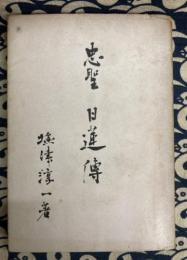 忠聖 日蓮傳
淳一著